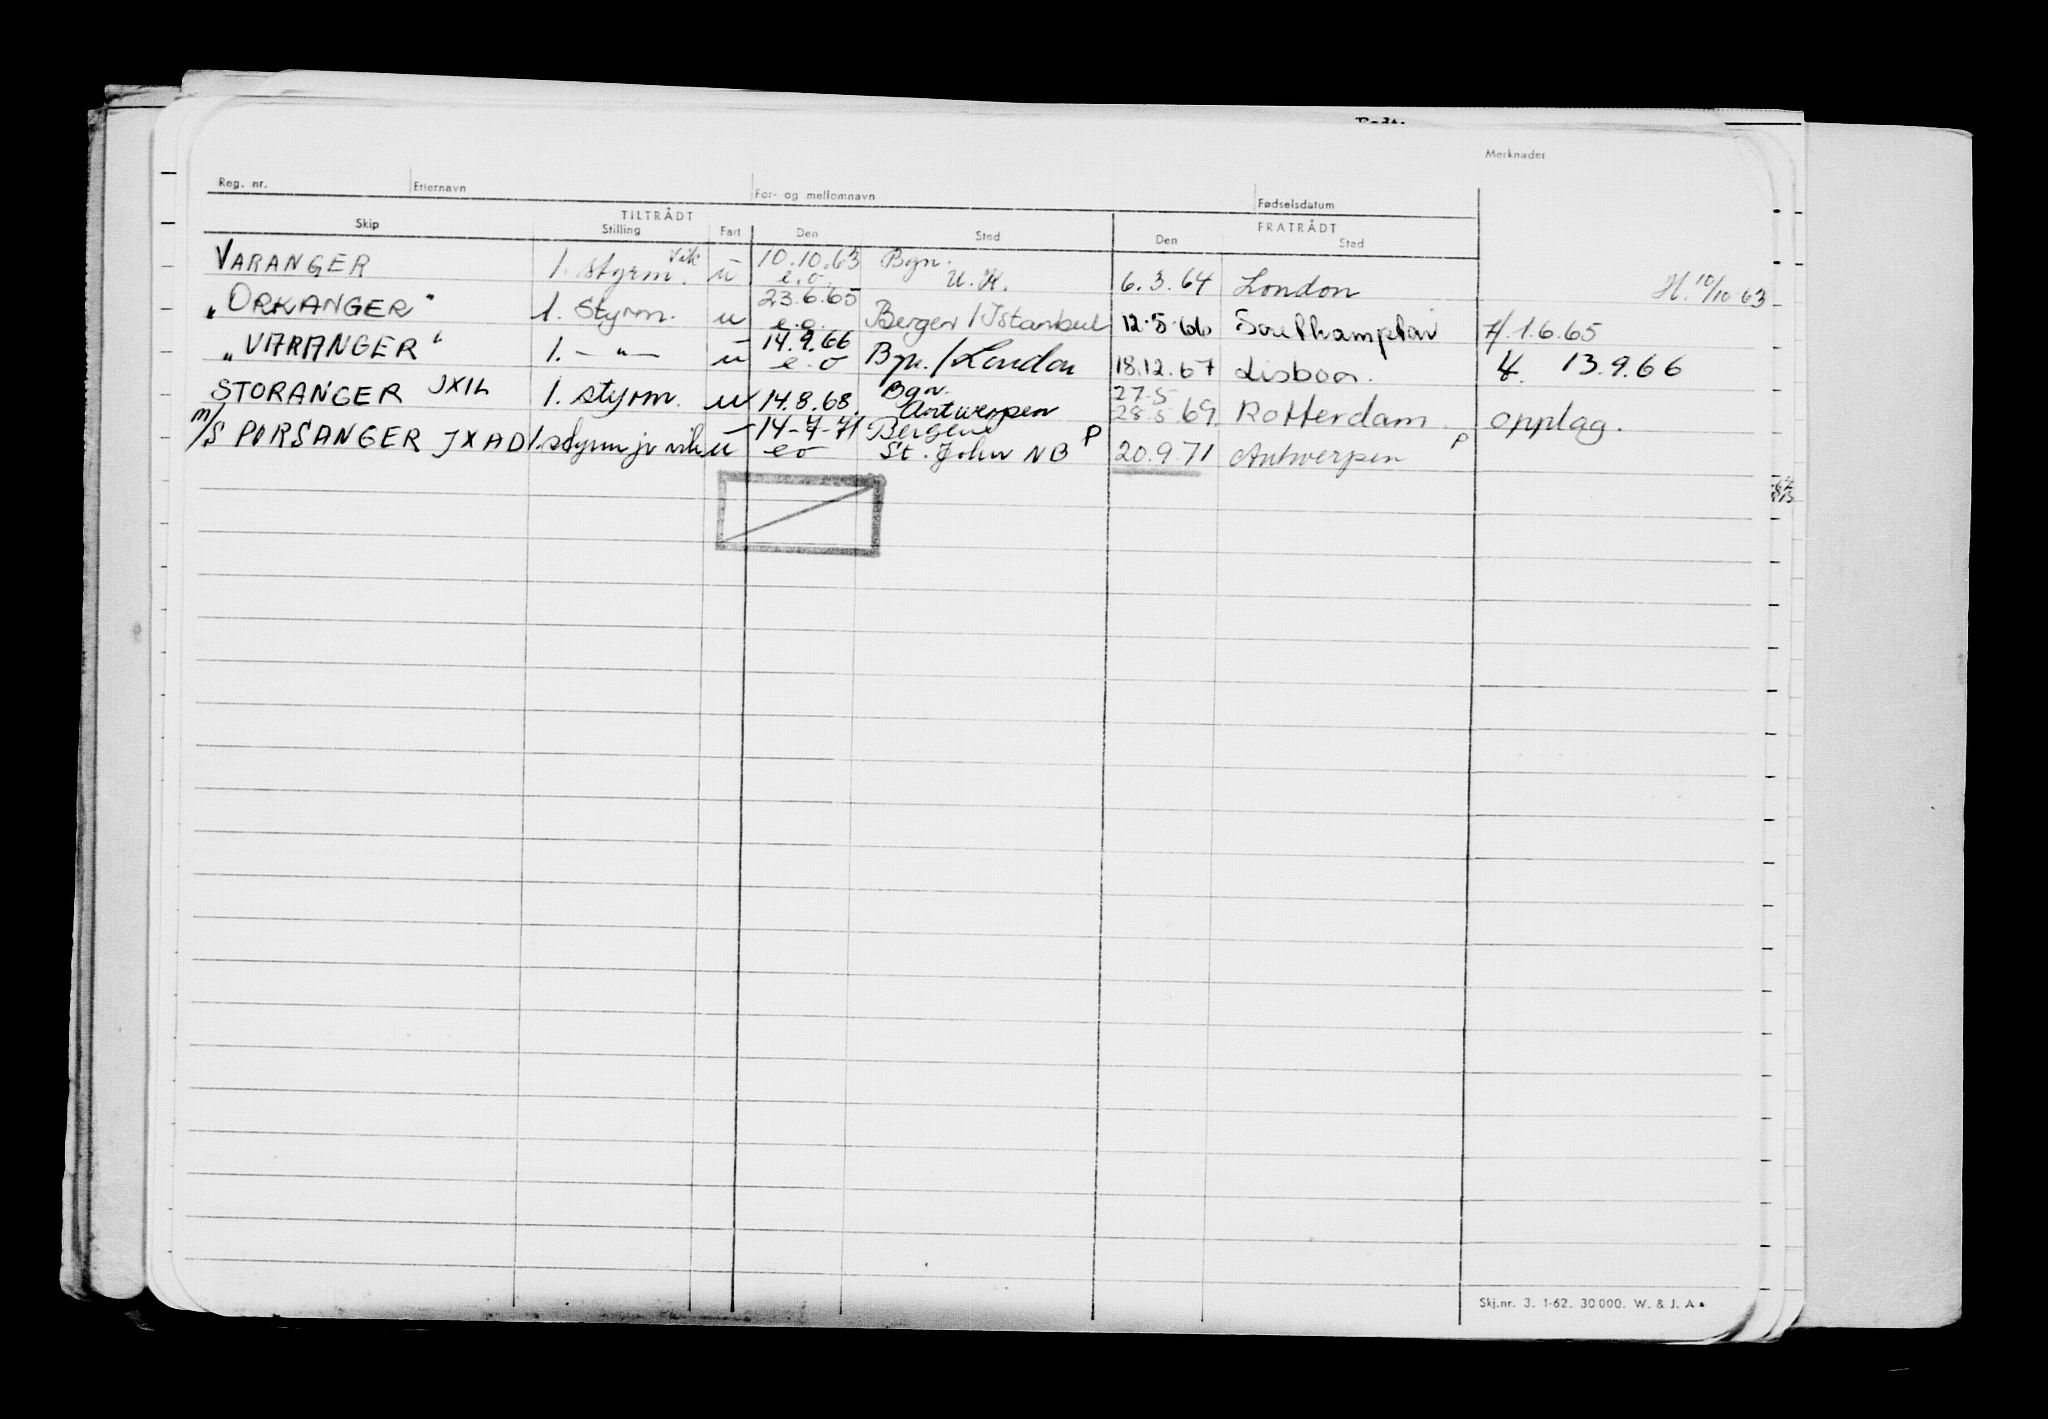 Merknader
Reg. nr. Etternavn For- og mellomnavn Fødselsdatum
TILTRÅDT FRATRÅDT
Skip Stilling Fart Den Sted Den Sted
VARANGER 1. styrm. vik u 10.10.63 Bgn. 6.3.64 London H. 10/10 63
e.o. U.K.
"ORKANGER" 1. Styrm. u 23.6.65 Bergen/Istanbul 12.5.66 Southampton 1.6.65
e.o.
"VARANGER" 1. — " — u 14.9.66 Bgn./London 18.12.67 Lisboa. 13.9.66
e.o
STORANGER JXIL 1. styrm. u 14.8.68. Bgn. Antwerpen 27.5 28.5 69. Rotterdam. opplag.
m/S PORSANGER JXAD 1. styrm jr vik u 14-7-71 Bergen
eo St. John NB P 20.9.71 Antwerpen P
Skj.nr. 3. 1-62. 30000. W. & J. A